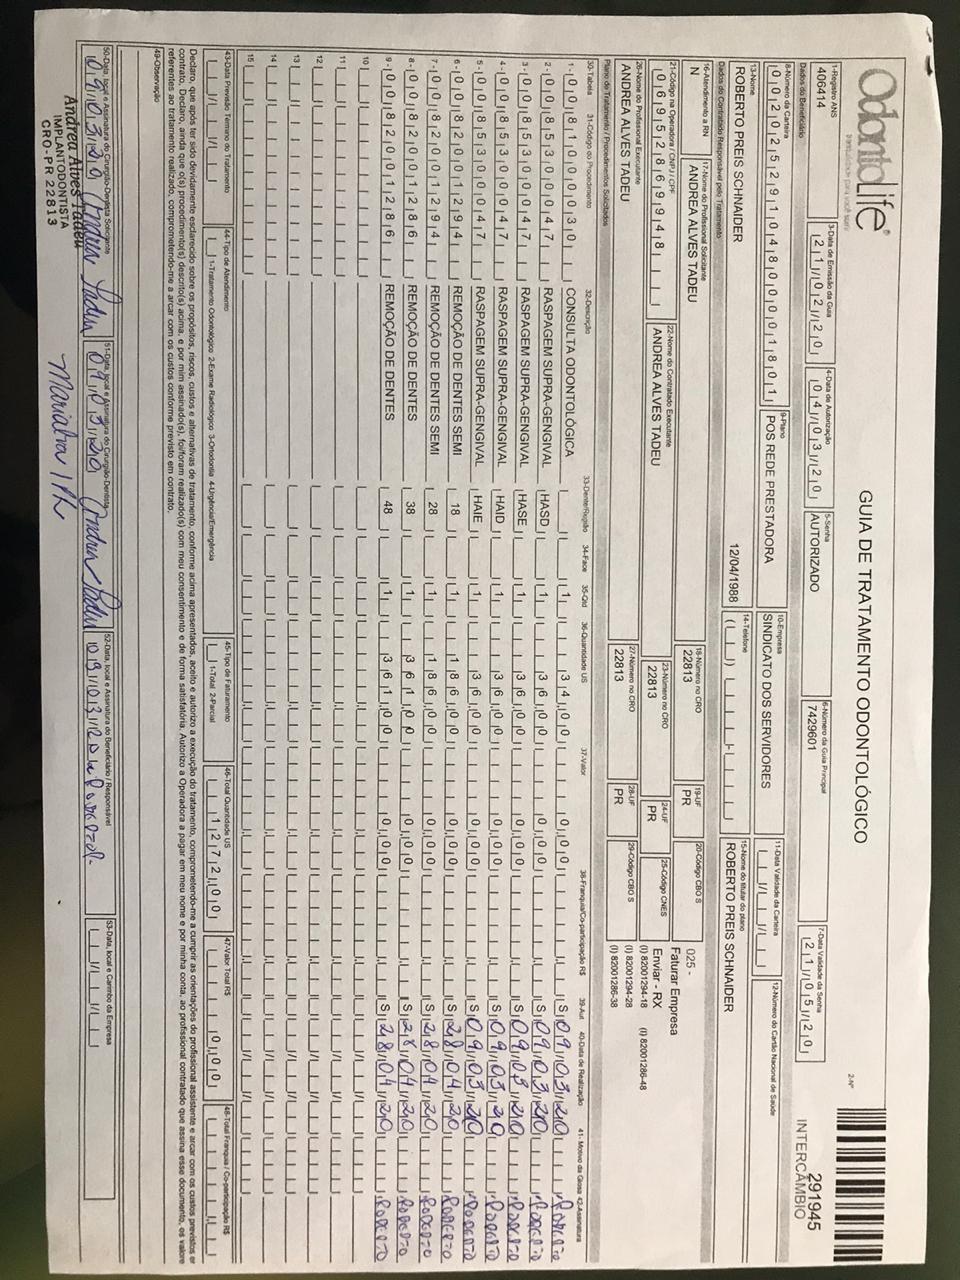 OdontoLife®
tranquilidade para você sorrir
GUIA DE TRATAMENTO ODONTOLÓGICO
2-Nº
291945
INTERCÂMBIO
1-Registro ANS
406414
3-Data de Emissão da Guia
21/02/20
4-Data de Autorização
04/03/20
5-Senha
AUTORIZADO
6-Número da Guia Principal
7429601
7-Data Validade da Senha
21/05/20
Dados do Beneficiário
8-Número da Carteira
00202529104800001801
9-Plano
POS REDE PRESTADORA
10-Empresa
SINDICATO DOS SERVIDORES
11-Data Validade da Carteira
12-Número do Cartão Nacional de Saúde
13-Nome
ROBERTO PREIS SCHNAIDER
12/04/1988
14-Telefone
15-Nome do titular do plano
ROBERTO PREIS SCHNAIDER
Dados do Contratado Responsável pelo Tratamento
16-Atendimento a RN
N
17-Nome do Profissional Solicitante
ANDREA ALVES TADEU
18-Número no CRO
22813
19-UF
PR
20-Código CBO S
025 -
Faturar Empresa
21-Código na Operadora / CNPJ / CPF
06952869948
22-Nome do Contratado Executante
ANDREA ALVES TADEU
23-Número no CRO
22813
24-UF
PR
25-Código CNES
Enviar - RX
(I) 82001294-18 (I) 82001286-48
(I) 82001294-28
(I) 82001286-38
26-Nome do Profissional Executante
ANDREA ALVES TADEU
27-Número no CRO
22813
28-UF
PR
29-Código CBO S
Plano de Tratamento / Procedimentos Solicitados
30-Tabela 31-Código do Procedimento 32-Descrição 33-Dente/Região 34-Face 35-Qtd 36-Quantidade US 37-Valor 38-Franquia/Co-participação R$ 39-Aut 40-Data de Realização 41- Motivo da Glosa 42-Assinatura
1- 00 81000030 CONSULTA ODONTOLÓGICA 1 34,00 0,00 S 09/03/20
2- 00 85300047 RASPAGEM SUPRA-GENGIVAL HASD 1 36,00 0,00 S 09/03/20
3- 00 85300047 RASPAGEM SUPRA-GENGIVAL HASE 1 36,00 0,00 S 09/03/20
4- 00 85300047 RASPAGEM SUPRA-GENGIVAL HAID 1 36,00 0,00 S 09/03/20
5- 00 85300047 RASPAGEM SUPRA-GENGIVAL HAIE 1 36,00 0,00 S 09/03/20
6- 00 82001294 REMOÇÃO DE DENTES SEMI 18 1 186,00 0,00 S 28/04/20
7- 00 82001294 REMOÇÃO DE DENTES SEMI 28 1 186,00 0,00 S 28/04/20
8- 00 82001286 REMOÇÃO DE DENTES 38 1 361,00 0,00 S 28/04/20
9- 00 82001286 REMOÇÃO DE DENTES 48 1 361,00 0,00 S 28/04/20
10
11
12
13
14
15
43-Data Previsão Término do Tratamento
44-Tipo de Atendimento
1-Tratamento Odontológico 2-Exame Radiológico 3-Ortodontia 4-Urgência/Emergência
45-Tipo de Faturamento
1-Total 2-Parcial
46-Total Quantidade US
1272,00
47-Valor Total R$
0,00
48-Total Franquia / Co-participação R$
Declaro, que após ter sido devidamente esclarecido sobre os propósitos, riscos, custos e alternativas de tratamento, conforme acima apresentados, aceito e autorizo a execução do tratamento, comprometendo-me a cumprir as orientações do profissional assistente e arcar com os custos previstos em
contrato. Declaro, ainda que o(s) procedimento(s) descrito(s) acima, e por mim assinado(s), foi/foram realizado(s) com meu consentimento e de forma satisfatória. Autorizo a Operadora a pagar em meu nome e por minha conta, ao profissional contratado que assina esse documento, os valores
referentes ao tratamento realizado, comprometendo-me a arcar com os custos conforme previsto em contrato.
49-Observação
50-Data, local e Assinatura do Cirurgião-Dentista Solicitante
09/03/20 Andrea Tadeu
51-Data, local e Assinatura do Cirurgião-Dentista
09/03/20 Andrea Tadeu
52-Data, local e Assinatura do Beneficiário / Responsável
09/03/20
53-Data, local e Carimbo da Empresa
Andrea Alves Tadeu
IMPLANTODONTISTA
CRO-PR 22813
Marialva / PR